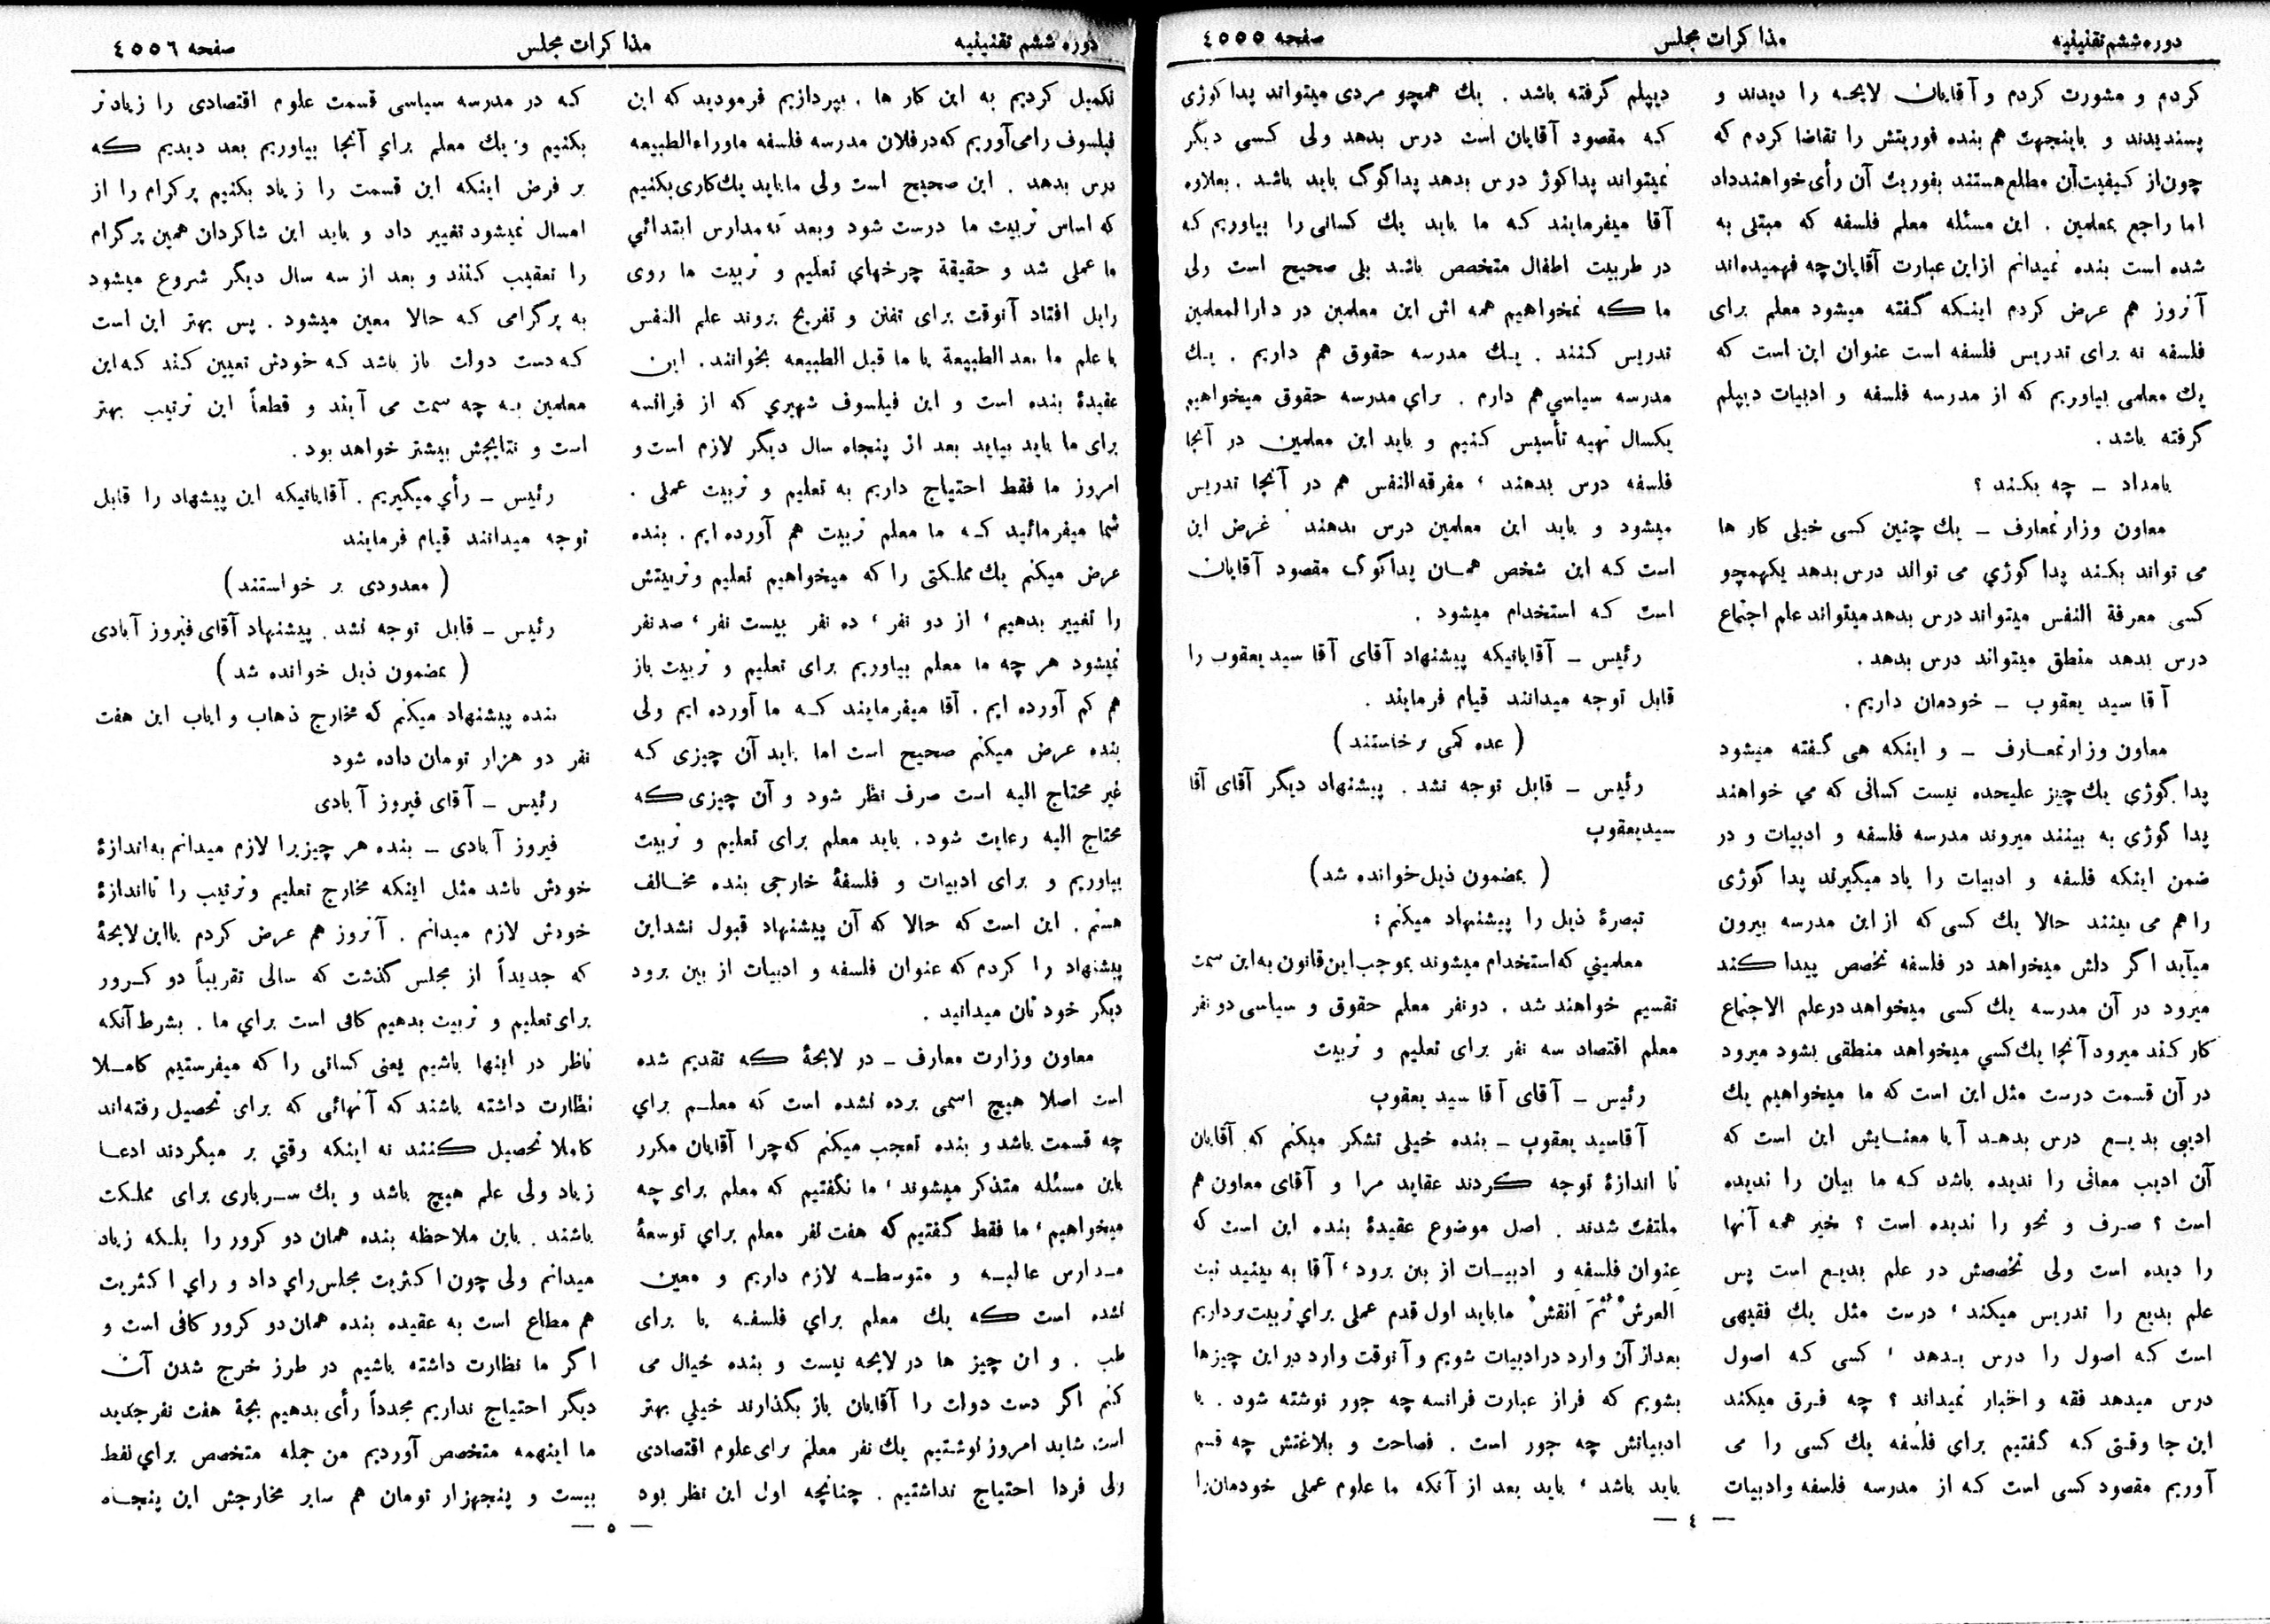 دوره ششم تقنینیه
مذاکرات مجلس
صفحه ٤٥٥٥
کردم و مشورت کردم و آقایان لایحه را دیدند و
پسندیدند و باینجهت هم بنده فوریتش را تقاضا کردم که
چون از کیفیت آن مطلع هستند بفوریت آن رأی خواهند داد
اما راجع بمعلمین . این مسئله معلم فلسفه که مبتنی به
شده است بنده نمیدانم از این عبارت آقایان چه فهمیده‌اند
آنروز هم عرض کردم اینکه گفته میشود معلم برای
فلسفه نه برای تدریس فلسفه است عنوان این است که
یك معلمی بیاوریم که از مدرسه فلسفه و ادبیات دیپلم
گرفته باشد .
بامداد ـ چه بکند ؟
معاون وزارتمعارف ـ یك چنین کسی خیلی کار ها
می تواند بکند پداگوژي می تواند درس بدهد یکهمچو
کسی معرفة النفس میتواند درس بدهد میتواند علم اجتماع
درس بدهد منطق میتواند درس بدهد .
آقا سید یعقوب ـ خودمان داریم .
معاون وزارتمعارف ـ و اینکه هی گفته میشود
پداگوژی یك چیز علیحده نیست کسانی که می خواهند
پداگوژی به بینند میروند مدرسه فلسفه و ادبیات و در
ضمن اینکه فلسفه و ادبیات را یاد میگیرند پداگوژی
را هم می بینند حالا یك کسی که از این مدرسه بیرون
میآید اگر دلش میخواهد در فلسفه تخصص پیدا کند
میرود در آن مدرسه یك کسی میخواهد در علم الاجتماع
کار کند میرود آنجا یك کسی میخواهد منطقی بشود میرود
در آن قسمت درست مثل این است که ما میخواهیم یك
ادیبی بدیع درس بدهد آیا معنایش این است که
آن ادیب معانی را ندیده باشد که ما بیان را ندیده
است ؟ صرف و نحو را ندیده است ؟ خیر همه آنها
را دیده است ولی تخصصش در علم بدیع است پس
علم بدیع را تدریس میکند ، درست مثل یك فقیهی
است که اصول را درس بدهد ، کسی که اصول
درس میدهد فقه و اخبار نمیداند ؟ چه فرق میکند
این جا وقتی که گفتیم برای فلسفه یك کسی را می
آوریم مقصود کسی است که از مدرسه فلسفه و ادبیات
دیپلم گرفته باشد . یك همچو مردی میتواند پداگوژی
که مقصود آقایان است درس بدهد ولی کسی دیگر
نمیتواند پداگوژ درس بدهد پداگوگ باید باشد . بعلاوه
آقا میفرمایند که ما باید یك کسانی را بیاوریم که
در طربیت اطفال متخصص باشد بلی صحیح است ولی
ما که نمخواهیم همه اش این معلمین در دارالمعلمین
تدریس کنند . یك مدرسه حقوق هم داریم . یك
مدرسه سیاسي هم دارم . براي مدرسه حقوق میخواهیم
یکسال تهیه تأسیس کنیم و باید این معلمین در آنجا
فلسفه درس بدهند ، مفرقه النفس هم در آنجا تدریس
میشود و باید این معلمین درس بدهند غرض این
است که این شخص همان پداگوگ مقصود آقایان
است که استخدام میشود .
رئیس ـ آقایانیکه پیشنهاد آقای آقا سید یعقوب را
قابل توجه میدانند قیام فرمایند .
( عده کمی برخاستند )
رئیس ـ قابل توجه نشد . پیشنهاد دیگر آقای آقا
سید یعقوب
( بمضمون ذیل خوانده شد )
تبصرۀ ذیل را پیشنهاد میکنم :
معلمیني که استخدام میشوند بموجب این قانون به این سمت
تقسیم خواهند شد . دو نفر معلم حقوق و سیاسی دو نفر
معلم اقتصاد سه نفر برای تعلیم و تربیت
رئیس ـ آقای آقا سید یعقوب
آقاسید یعقوب ـ بنده خیلی تشکر میکنم که آقایان
تا اندازۀ توجه کردند عقاید مرا و آقای معاون هم
ملتفت شدند . اصل موضوع عقیدۀ بنده این است که
عنوان فلسفه و ادبیات از بین برود ، آقا به بینید ثبت
العرش ثم انقش ما باید اول قدم عملی براي تربیت برداریم
بعد از آن وارد در ادبیات شویم و آنوقت وارد در این چیزها
بشویم که فراز عبارت فرانسه چه جور نوشته شود . یا
ادبیاتش چه جور است . فصاحت و بلاغتش چه قسم
باید باشد ، باید بعد از آنکه ما علوم عملی خودمان را
— ٤ —
دوره ششم تقنینیه
مذاکرات مجلس
صفحه ٤٥٥٦
تکمیل کردیم به این کار ها . بپردازیم فرمودید که این
فیلسوف را می‌آوریم که در فلان مدرسه فلسفه ماوراءالطبیعه
درس بدهد . این صحیح است ولی ما باید یك کاری بکنیم
که اساس تربیت ما درست شود و بعد که مدارس ابتدائي
ما عملی شد و حقیقة چرخهاي تعلیم و تربیت ما روی
رایل افتاد آنوقت برای تفنن و تفریح بروند علم النفس
یا علم ما بعد الطبیعة یا ما قبل الطبیعه بخوانند . این
عقیدۀ بنده است و این فیلسوف شهیري که از فرانسه
برای ما باید بیاید بعد از پنجاه سال دیگر لازم است و
امروز ما فقط احتیاج داریم به تعلیم و تربیت عملی .
شما میفرمائید که ما معلم تربیت هم آورده ایم . بنده
عرض میکنم یك مملکتی را که میخواهیم تعلیم و تربیتش
را تغییر بدهیم ، از دو نفر ، ده نفر بیست نفر ، صد نفر
نمیشود هر چه ما معلم بیاوریم برای تعلیم و تربیت باز
هم کم آورده ایم . آقا میفرمایند که ما آورده ایم ولی
بنده عرض میکنم صحیح است اما باید آن چیزی که
غیر محتاج الیه است صرف نظر شود و آن چیزی که
محتاج الیه رعایت شود . باید معلم برای تعلیم و تربیت
بیاوریم و برای ادبیات و فلسفۀ خارجی بنده مخالف
هستم . این است که حالا که آن پیشنهاد قبول نشد این
پیشنهاد را کردم که عنوان فلسفه و ادبیات از بین برود
دیگر خود تان میدانید .
معاون وزارت معارف ـ در لایحۀ که تقدیم شده
است اصلا هیچ اسمی برده نشده است که معلم براي
چه قسمت باشد و بنده تعجب میکنم که چرا آقایان مکرر
باین مسئله متذکر میشوند ، ما نگفتیم که معلم برای چه
میخواهیم ، ما فقط گفتیم که هفت نفر معلم براي توسعۀ
مدارس عالیه و متوسطه لازم داریم و معین
نشده است که یك معلم براي فلسفه یا برای
طب . و ان چیز ها در لایحه نیست و بنده خیال می
کنم اگر دست دولت را آقایان باز بگذارند خیلي بهتر
است شاید امروز نوشتیم یك نفر معلم برای علوم اقتصادی
ولی فردا احتیاج نداشتیم . چنانچه اول این نظر بود
که در مدرسه سیاسی قسمت علوم اقتصادی را زیادتر
بکنیم و یك معلم براي آنجا بیاوریم بعد دیدیم که
بر فرض اینکه این قسمت را زیاد بکنیم پرگرام را از
امسال نمیشود تغییر داد و باید این شاگردان همین پرگرام
را تعقیب کنند و بعد از سه سال دیگر شروع میشود
به پرگرامی که حالا معین میشود . پس بهتر این است
که دست دولت باز باشد که خودش تعیین کند که این
معلمین به چه سمت می آیند و قطعاً این ترتیب بهتر
است و نتایجش بیشتر خواهد بود .
رئیس ـ رأي میگیریم . آقایانیکه این پیشنهاد را قابل
توجه میدانند قیام فرمایند
( معدودی بر خواستند )
رئیس ـ قابل توجه نشد . پیشنهاد آقای فیروز آبادی
( بمضمون ذیل خوانده شد )
بنده پیشنهاد میکنم که مخارج ذهاب و ایاب این هفت
نفر دو هزار تومان داده شود
رئیس ـ آقای فیروز آبادی
فیروز آبادی ـ بنده هر چیزیرا لازم میدانم به اندازۀ
خودش باشد مثل اینکه مخارج تعلیم و ترتیب را تااندازۀ
خودش لازم میدانم . آنروز هم عرض کردم بااین لایحۀ
که جدیداً از مجلس گذشت که سالی تقریباً دو کرور
برای تعلیم و تربیت بدهیم کافی است براي ما . بشرط آنکه
ناظر در اینها باشیم یعنی کسانی را که میفرستیم کاملا
نظارت داشته باشند که آنهائی که برای تحصیل رفته‌اند
کاملا تحصیل کنند نه اینکه وقتي بر میگردند ادعا
زیاد ولی علم هیچ باشد و یك سرباری برای مملکت
باشند . باین ملاحظه بنده همان دو کرور را بلکه زیاد
میدانم ولی چون اکثریت مجلس راي داد و راي اکثریت
هم مطاع است به عقیده بنده همان دو کرور کافی است و
اگر ما نظارت داشته باشیم در طرز خرج شدن آن
دیگر احتیاج نداریم مجدداً رأی بدهیم بجة هفت نفر جدید
ما اینهمه متخصص آوردیم من جمله متخصص براي نفط
بیست و پنجهزار تومان هم سایر مخارجش این پنجاه
— ٥ —